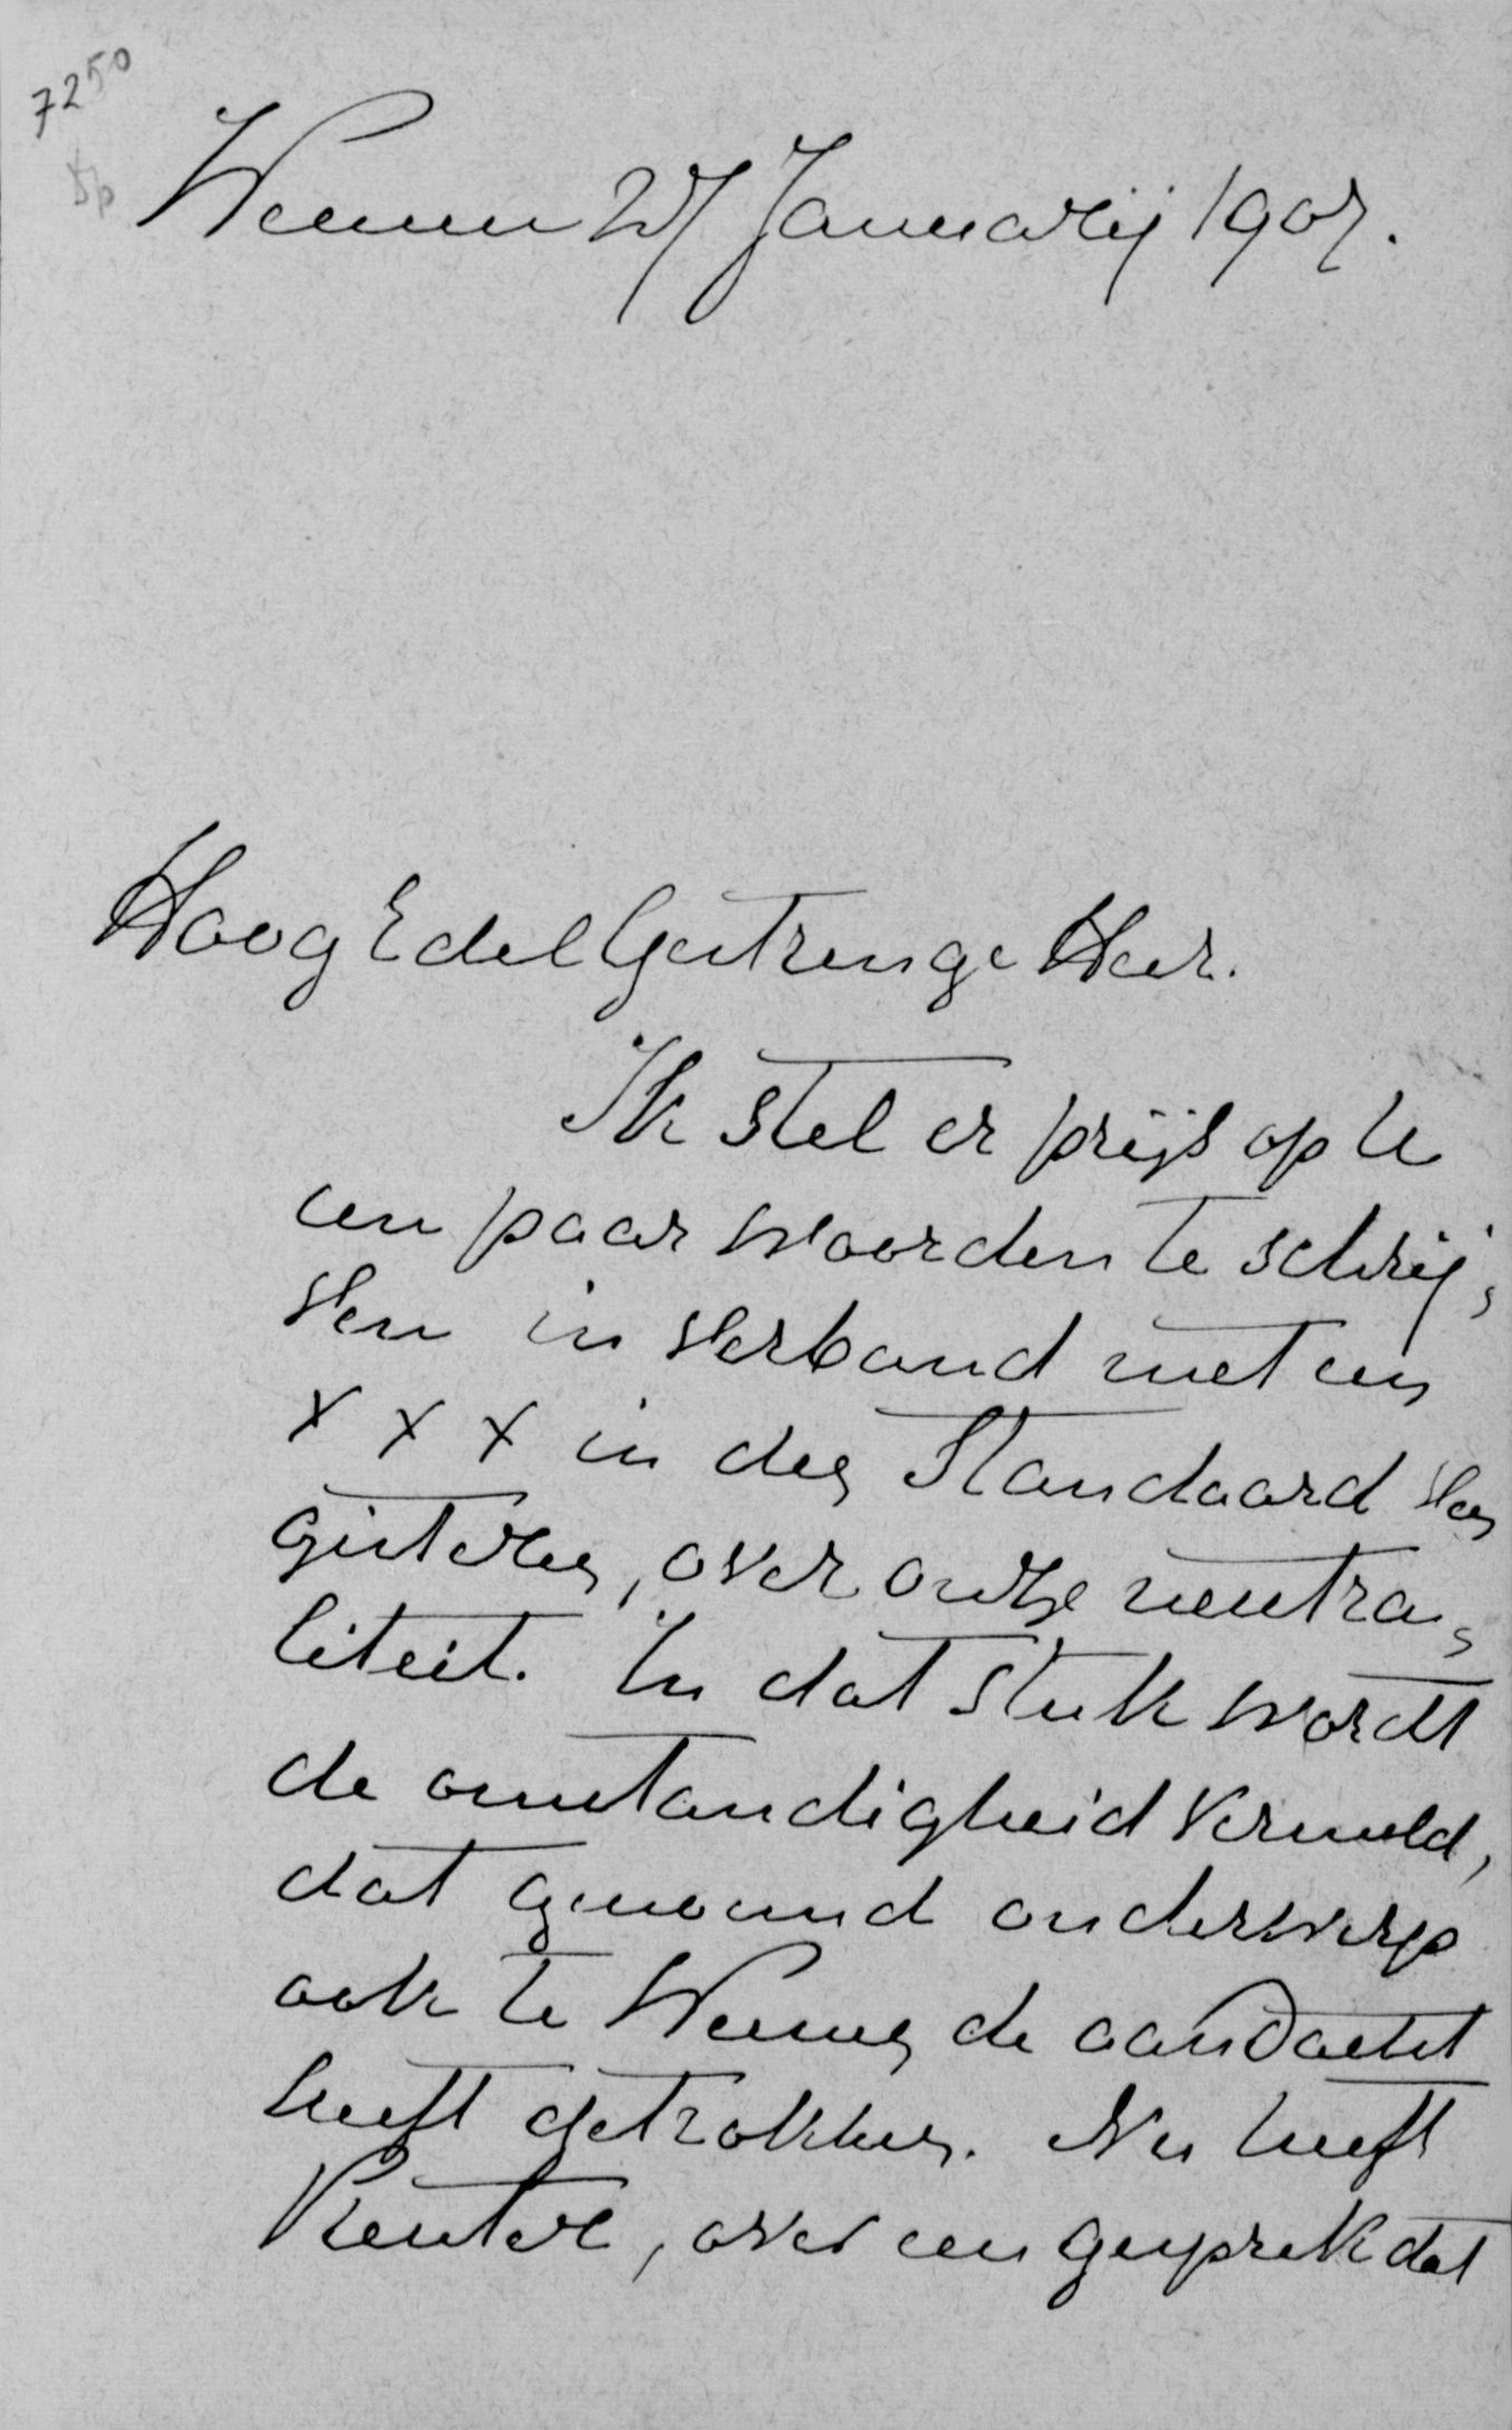 7250
Weenen 27 Januarij 1907.
HoogEdelGestrenge Heer.
Ik stel er prijs op U
een paar woorden te schrij,
ven in verband met een
x x x in den Standaard van
gisteren, over onze neutra,
liteit. In dat stuk wordt
de omstandigheid vermeld,
dat genoemd onderwerp
ook te Weenen de aandacht
heeft getrokken. Nu heeft
Reuter, over een gesprek dat